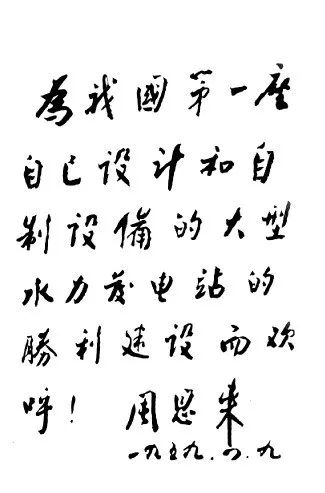 為我國第一座
自己设计和自
制设備的大型
水力发电站的
勝利建设而欢
呼! 周恩来
一九五九.四.九